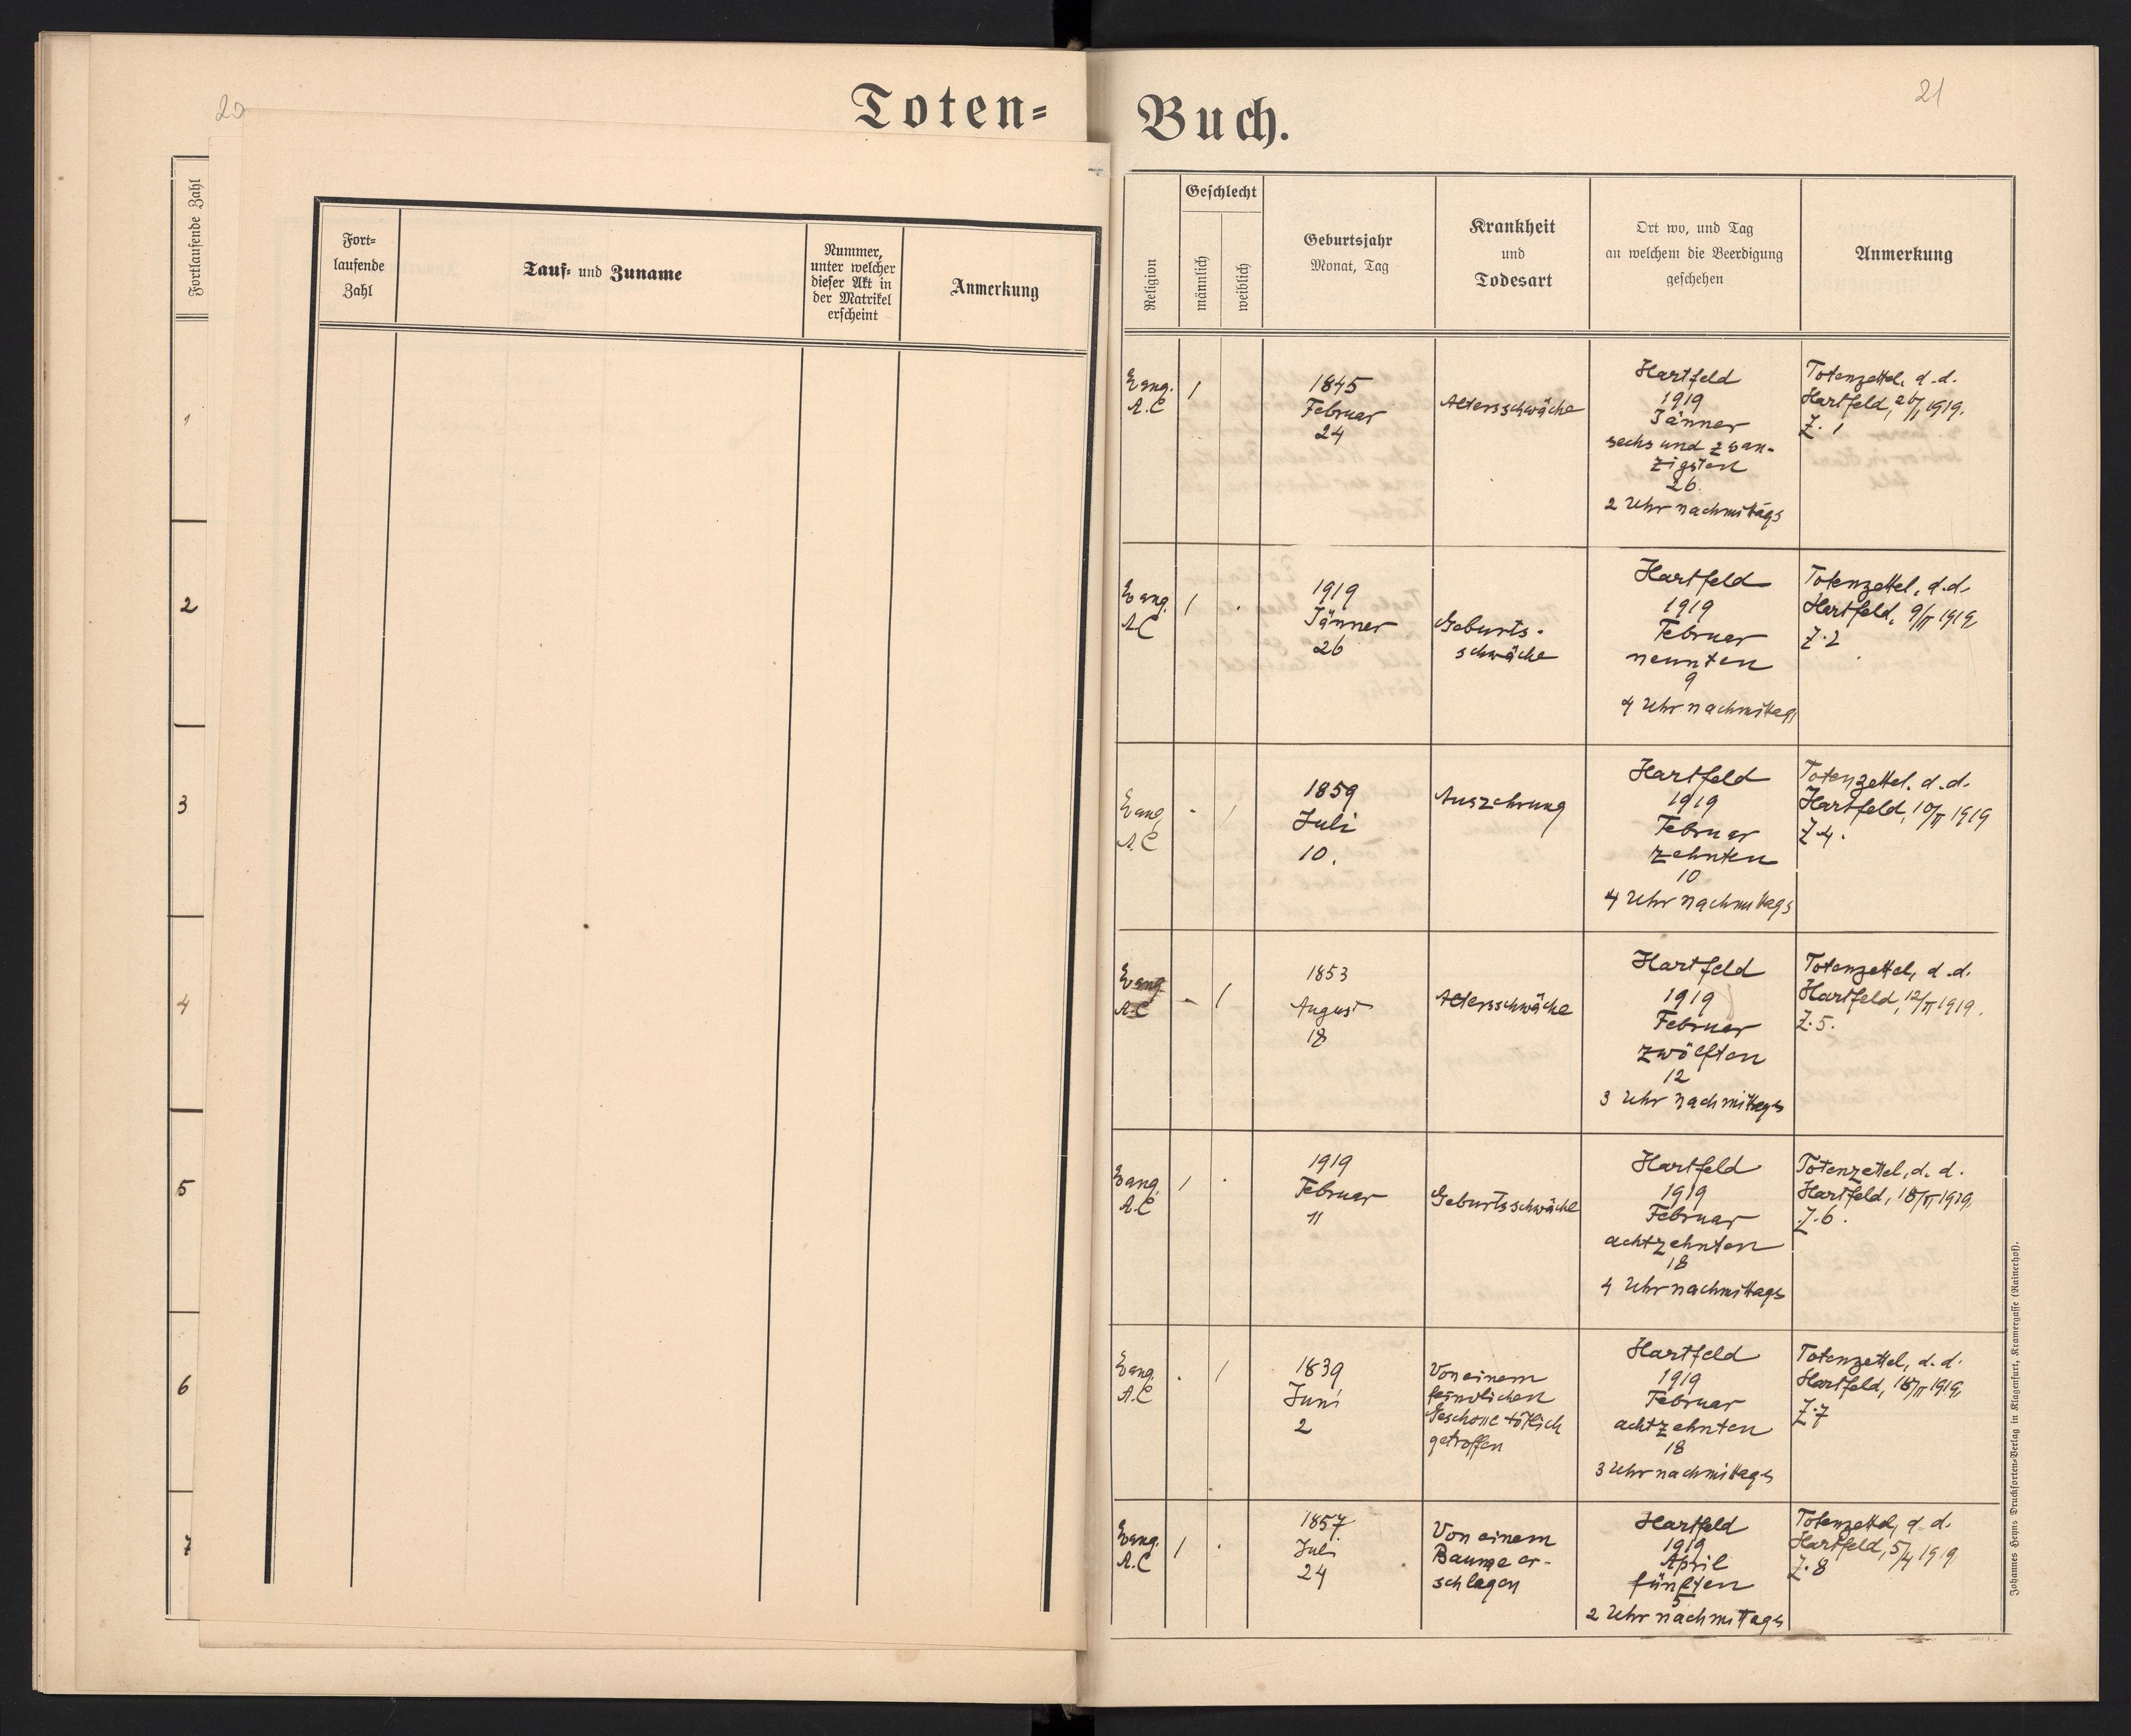 20
Toten=
Buch.
21
Fortlaufende Zahl
1
2
3
4
5
6
7
Fort=
laufende
Zahl
Tauf= und Zuname
Nummer,
unter welcher
dieser Akt in
der Matrikel
erscheint
Anmerkung
Religion
Geschlecht
männlich
weiblich
Geburtsjahr
Monat, Tag
Krankheit
und
Todesart
Ort wo, und Tag
an welchem die Beerdigung
geschehen
Anmerkung
Evang.
A.C
1
1845
Februar
24
Altersschwäche
Hartfeld
1919
Jänner
sechs und zwan-
zigsten
26.
2 Uhr nachmittags
Totenzettel, d.d.
Hartfeld, 26/I 1919.
Z. 1
Evang.
A.C
1
1919
Jänner
26
Geburts-
schwäche
Hartfeld
1919
Februar
neunten
9
4 Uhr nachmittags
Totenzettel, d.d.
Hartfeld, 9/II 1919,
Z. 2
Evang.
A.C
1
1859
Juli
10.
Auszehrung
Hartfeld
1919
Februar
zehnten
10
4 Uhr nachmittags
Totenzettel, d.d.
Hartfeld, 10/II 1919
Z 4.
Evang.
A.C
1
1853
August
18
Altersschwäche
Hartfeld
1919
Februar
zwölften
12
3 Uhr nachmittags
Totenzettel, d.d.
Hartfeld, 12/II 1919.
Z. 5.
Evang.
A.C
1
1919
Februar
11
Geburtsschwäche
Hartfeld
1919
Februar
achtzehnten
18
4 Uhr nachmittags
Totenzettel, d.d.
Hartfeld, 18/II 1919,
Z. 6.
Evang.
A.C
1
1839
Juni
2
Von einem
feindlichen
Geschoße tötlich
getroffen
Hartfeld
1919
Februar
achtzehnten
18
3 Uhr nachmittags
Totenzettel, d.d.
Hartfeld, 18/II 1919,
Z. 7
Evang.
A.C
1
1857
Juli
24
Von einem
Baume er-
schlagen
Hartfeld
1919
April
fünften
5
2 Uhr nachmittags
Totenzettel, d.d.
Hartfeld, 5/4 1919
Z. 8
Johannes Heyns Drucksorten=Verlag in Klagenfurt, Kramergasse (Rainerhof).